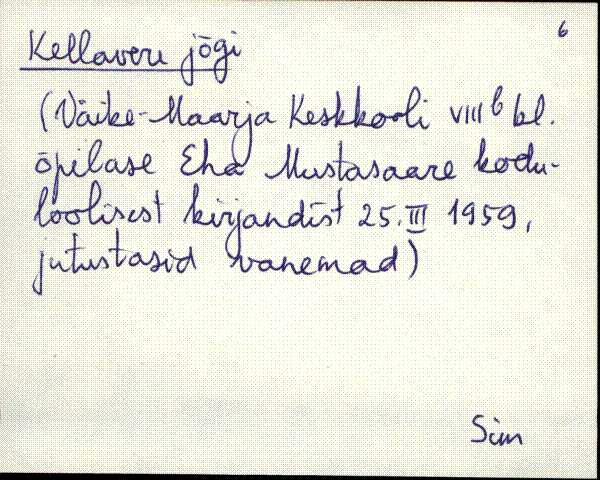 6
Kellavere jõgi
(Väike-Maarja Keskkooli VIII b kl.
õpilase Eha Mustasaare kodu-
loolisest kirjandist 25. III 1959,
jutustasid vanemad)
Sim